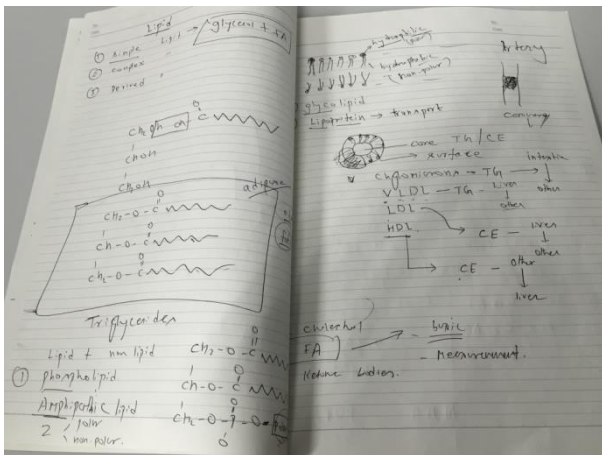 Lipid
① Simple Lipid → glycerol + FA
② complex "
③ Derived "
O
C
CHOH
CH2OH
adipose
O
CH2-O-C
O
Ch-O-C
O
CH2-O-C
Triglycerides
Lipid + non lipid
① phospholipid
Amphipathic lipid
2 polar
non polar.
O
CH2-O-C
O
Ch-O-C
O
CH2-O-P-O-
O
hydrophilic
(polar)
hydrophobic
(non polar)
glycolipid
Lipoprotein → transport
core TG/CE
surface
chylomicrons → TG → intestine
↓
other
VLDL - TG - liver
↓
other
LDL → CE - liver
↓
other
HDL → CE - other
↓
liver
Artery
Coronary
cholesterol
FA → - basic
- Measurement.
Ketone bodies.